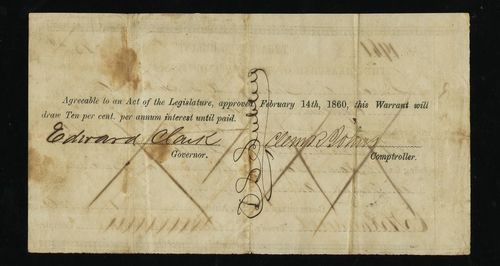 Agreeable to an Act of the Legislature, approved February 14th, 1860, this Warrant will
draw Ten per cent. per annum interest until paid.
Edward Clark
Clem R Johns
Governor.
Comptroller.